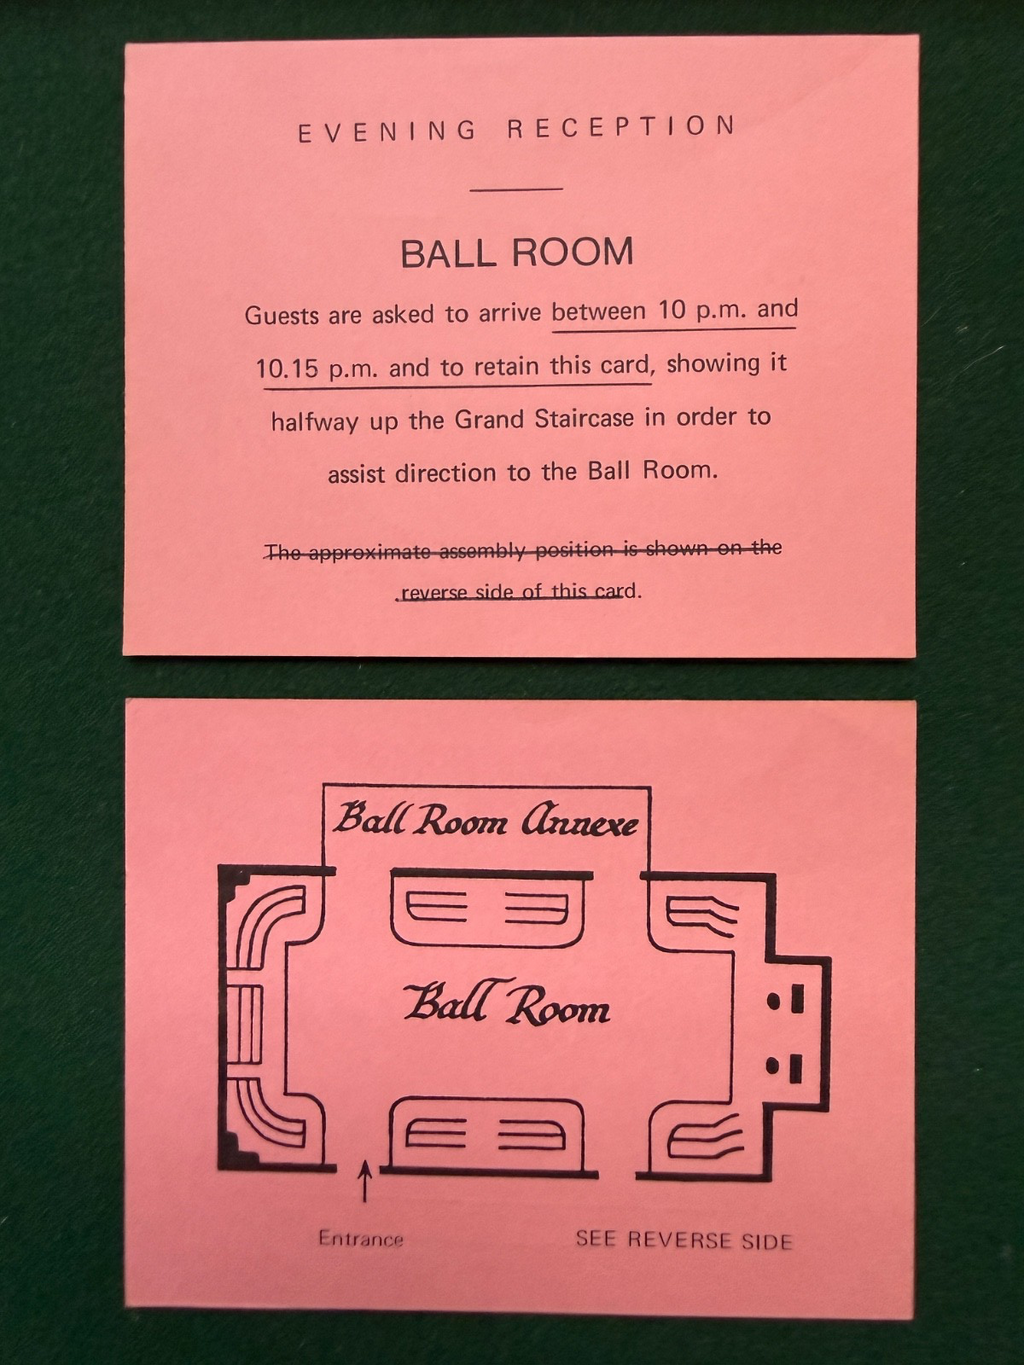 EVENING RECEPTION
BALL ROOM
Guests are asked to arrive between 10 p.m. and
10.15 p.m. and to retain this card, showing it
halfway up the Grand Staircase in order to
assist direction to the Ball Room.
The approximate assembly position is shown on the
reverse side of this card.
Ball Room Annexe
Ball Room
Entrance
SEE REVERSE SIDE